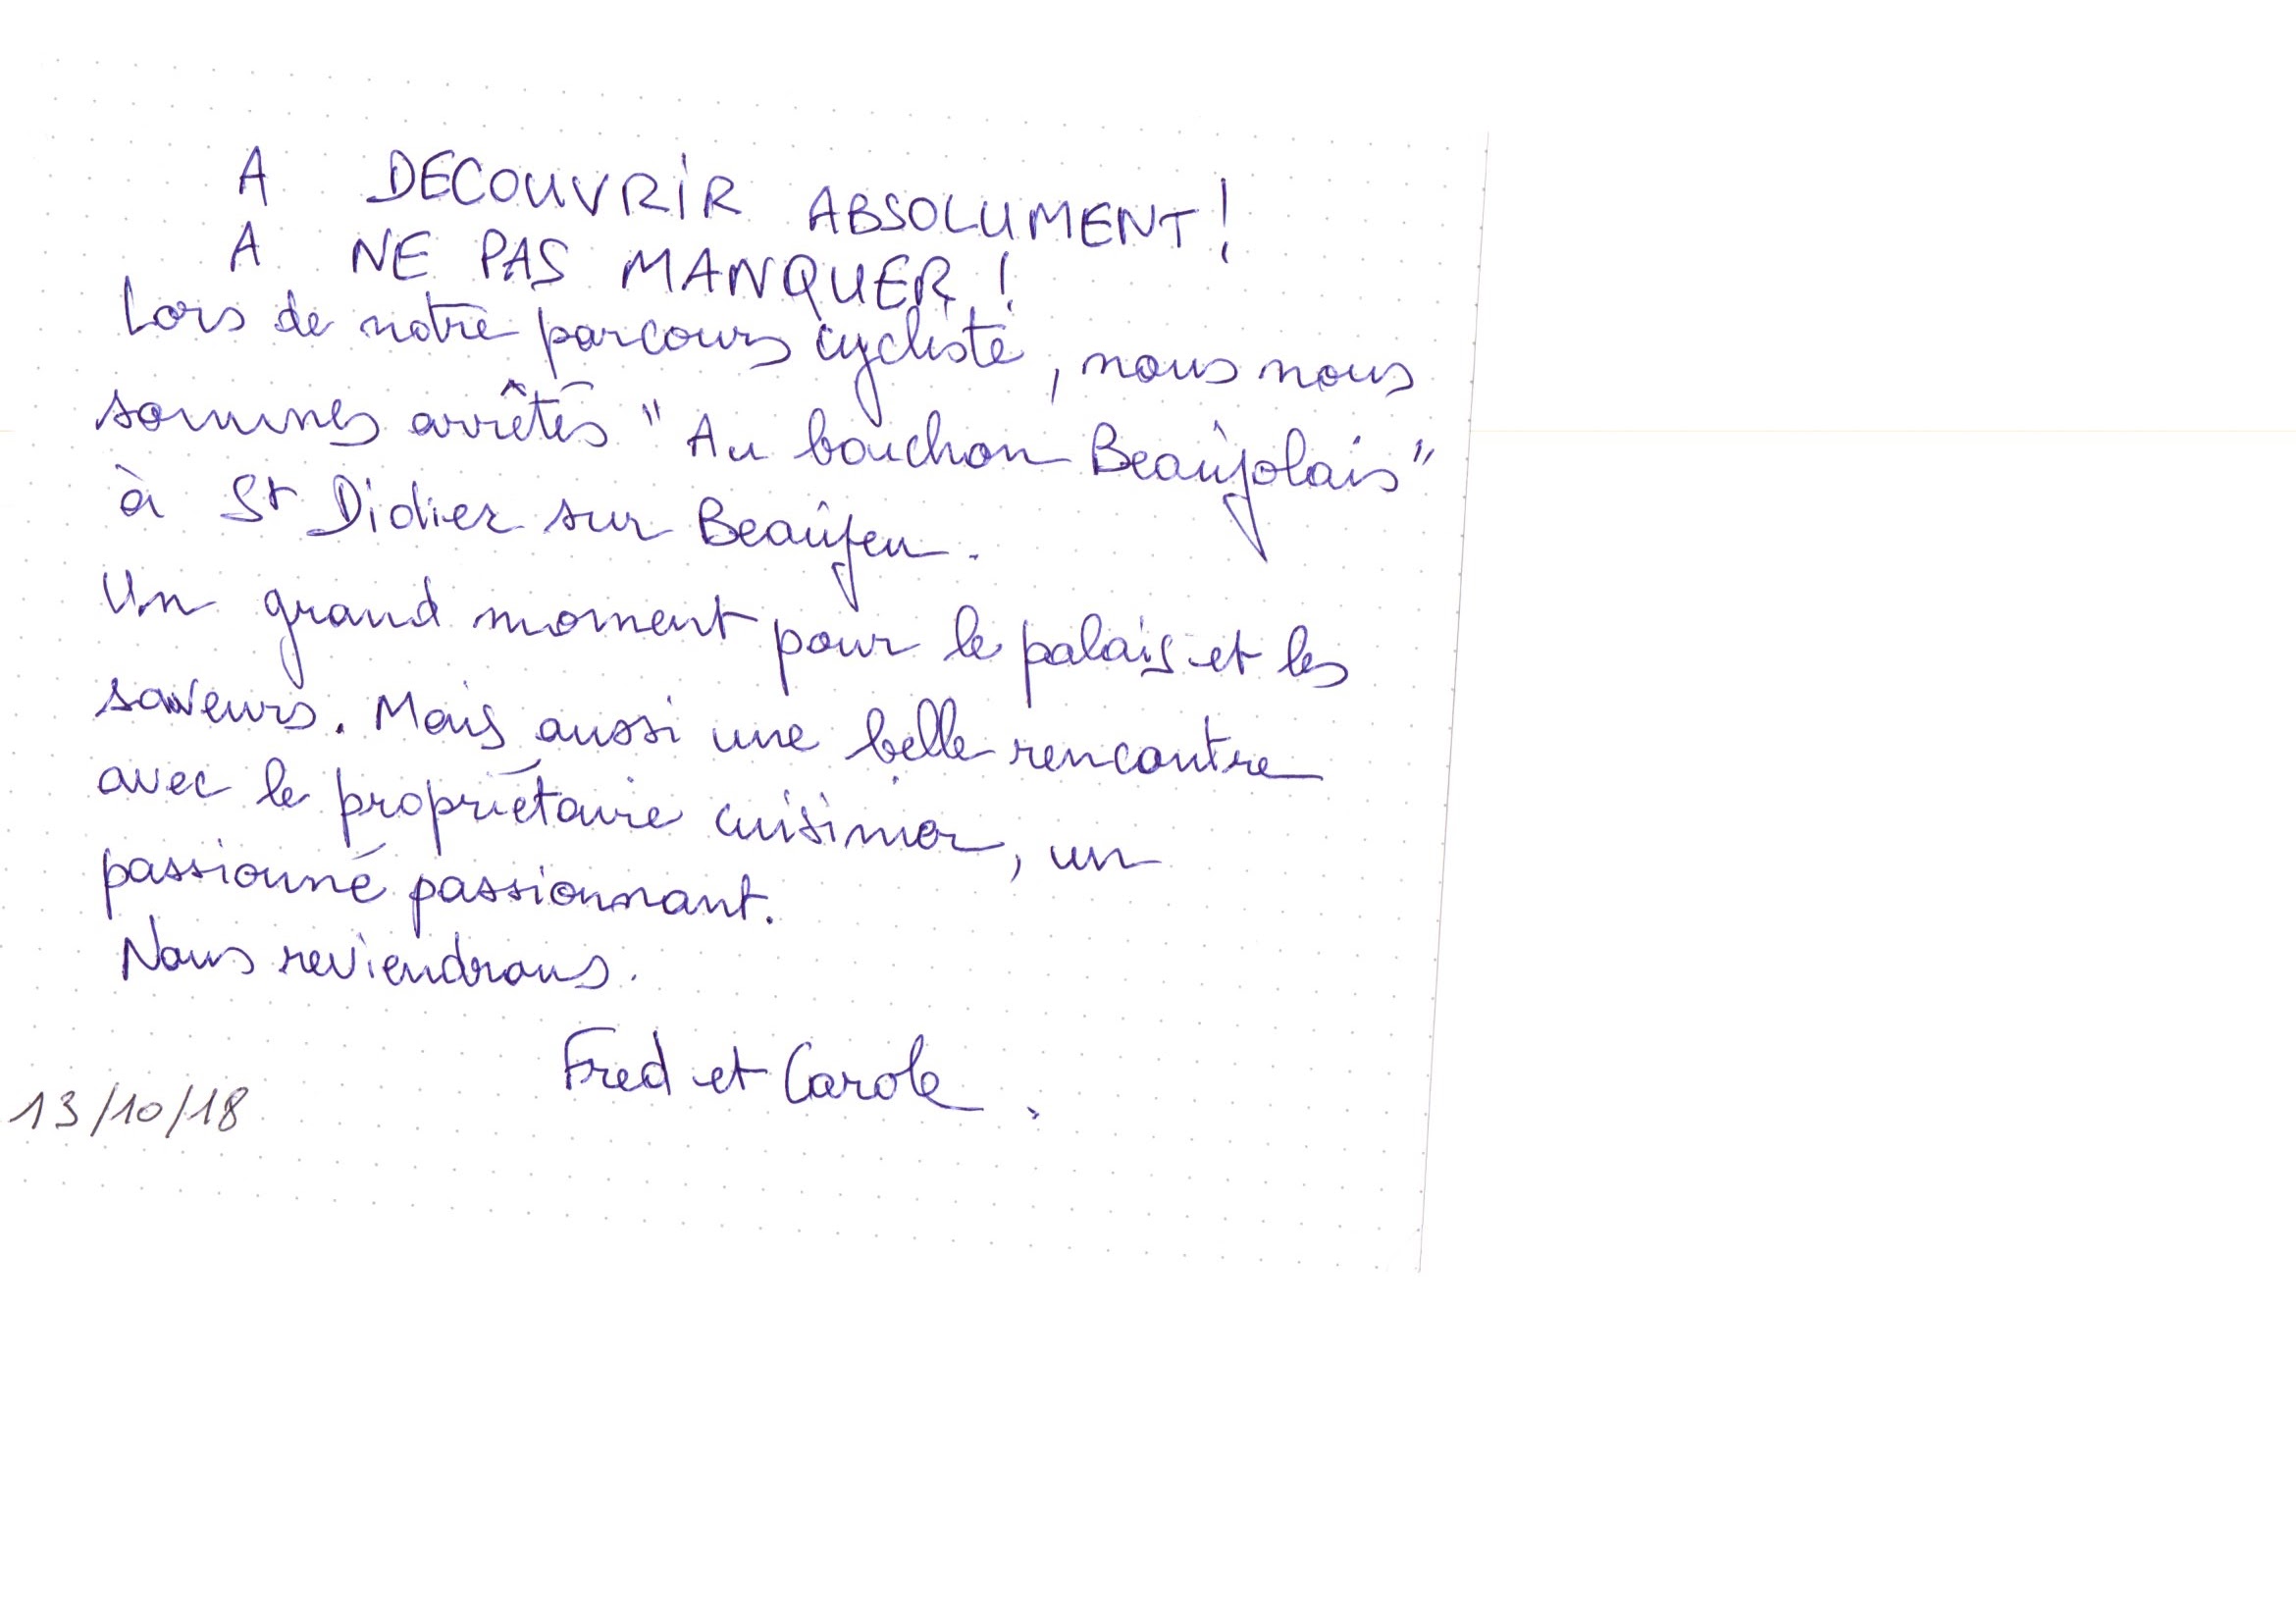 A DECOUVRIR ABSOLUMENT!
A NE PAS MANQUER!
Lors de notre parcours cycliste, nous nous
sommes arrêtés "Au bouchon Beaujolais"
à St Didier sur Beaujeu.
Un grand moment pour le palais et les
saveurs. Mais aussi une belle rencontre
avec le propriétaire cuisinier, un
passionné passionnant.
Nous reviendrons.
Fred et Carole.
13/10/18